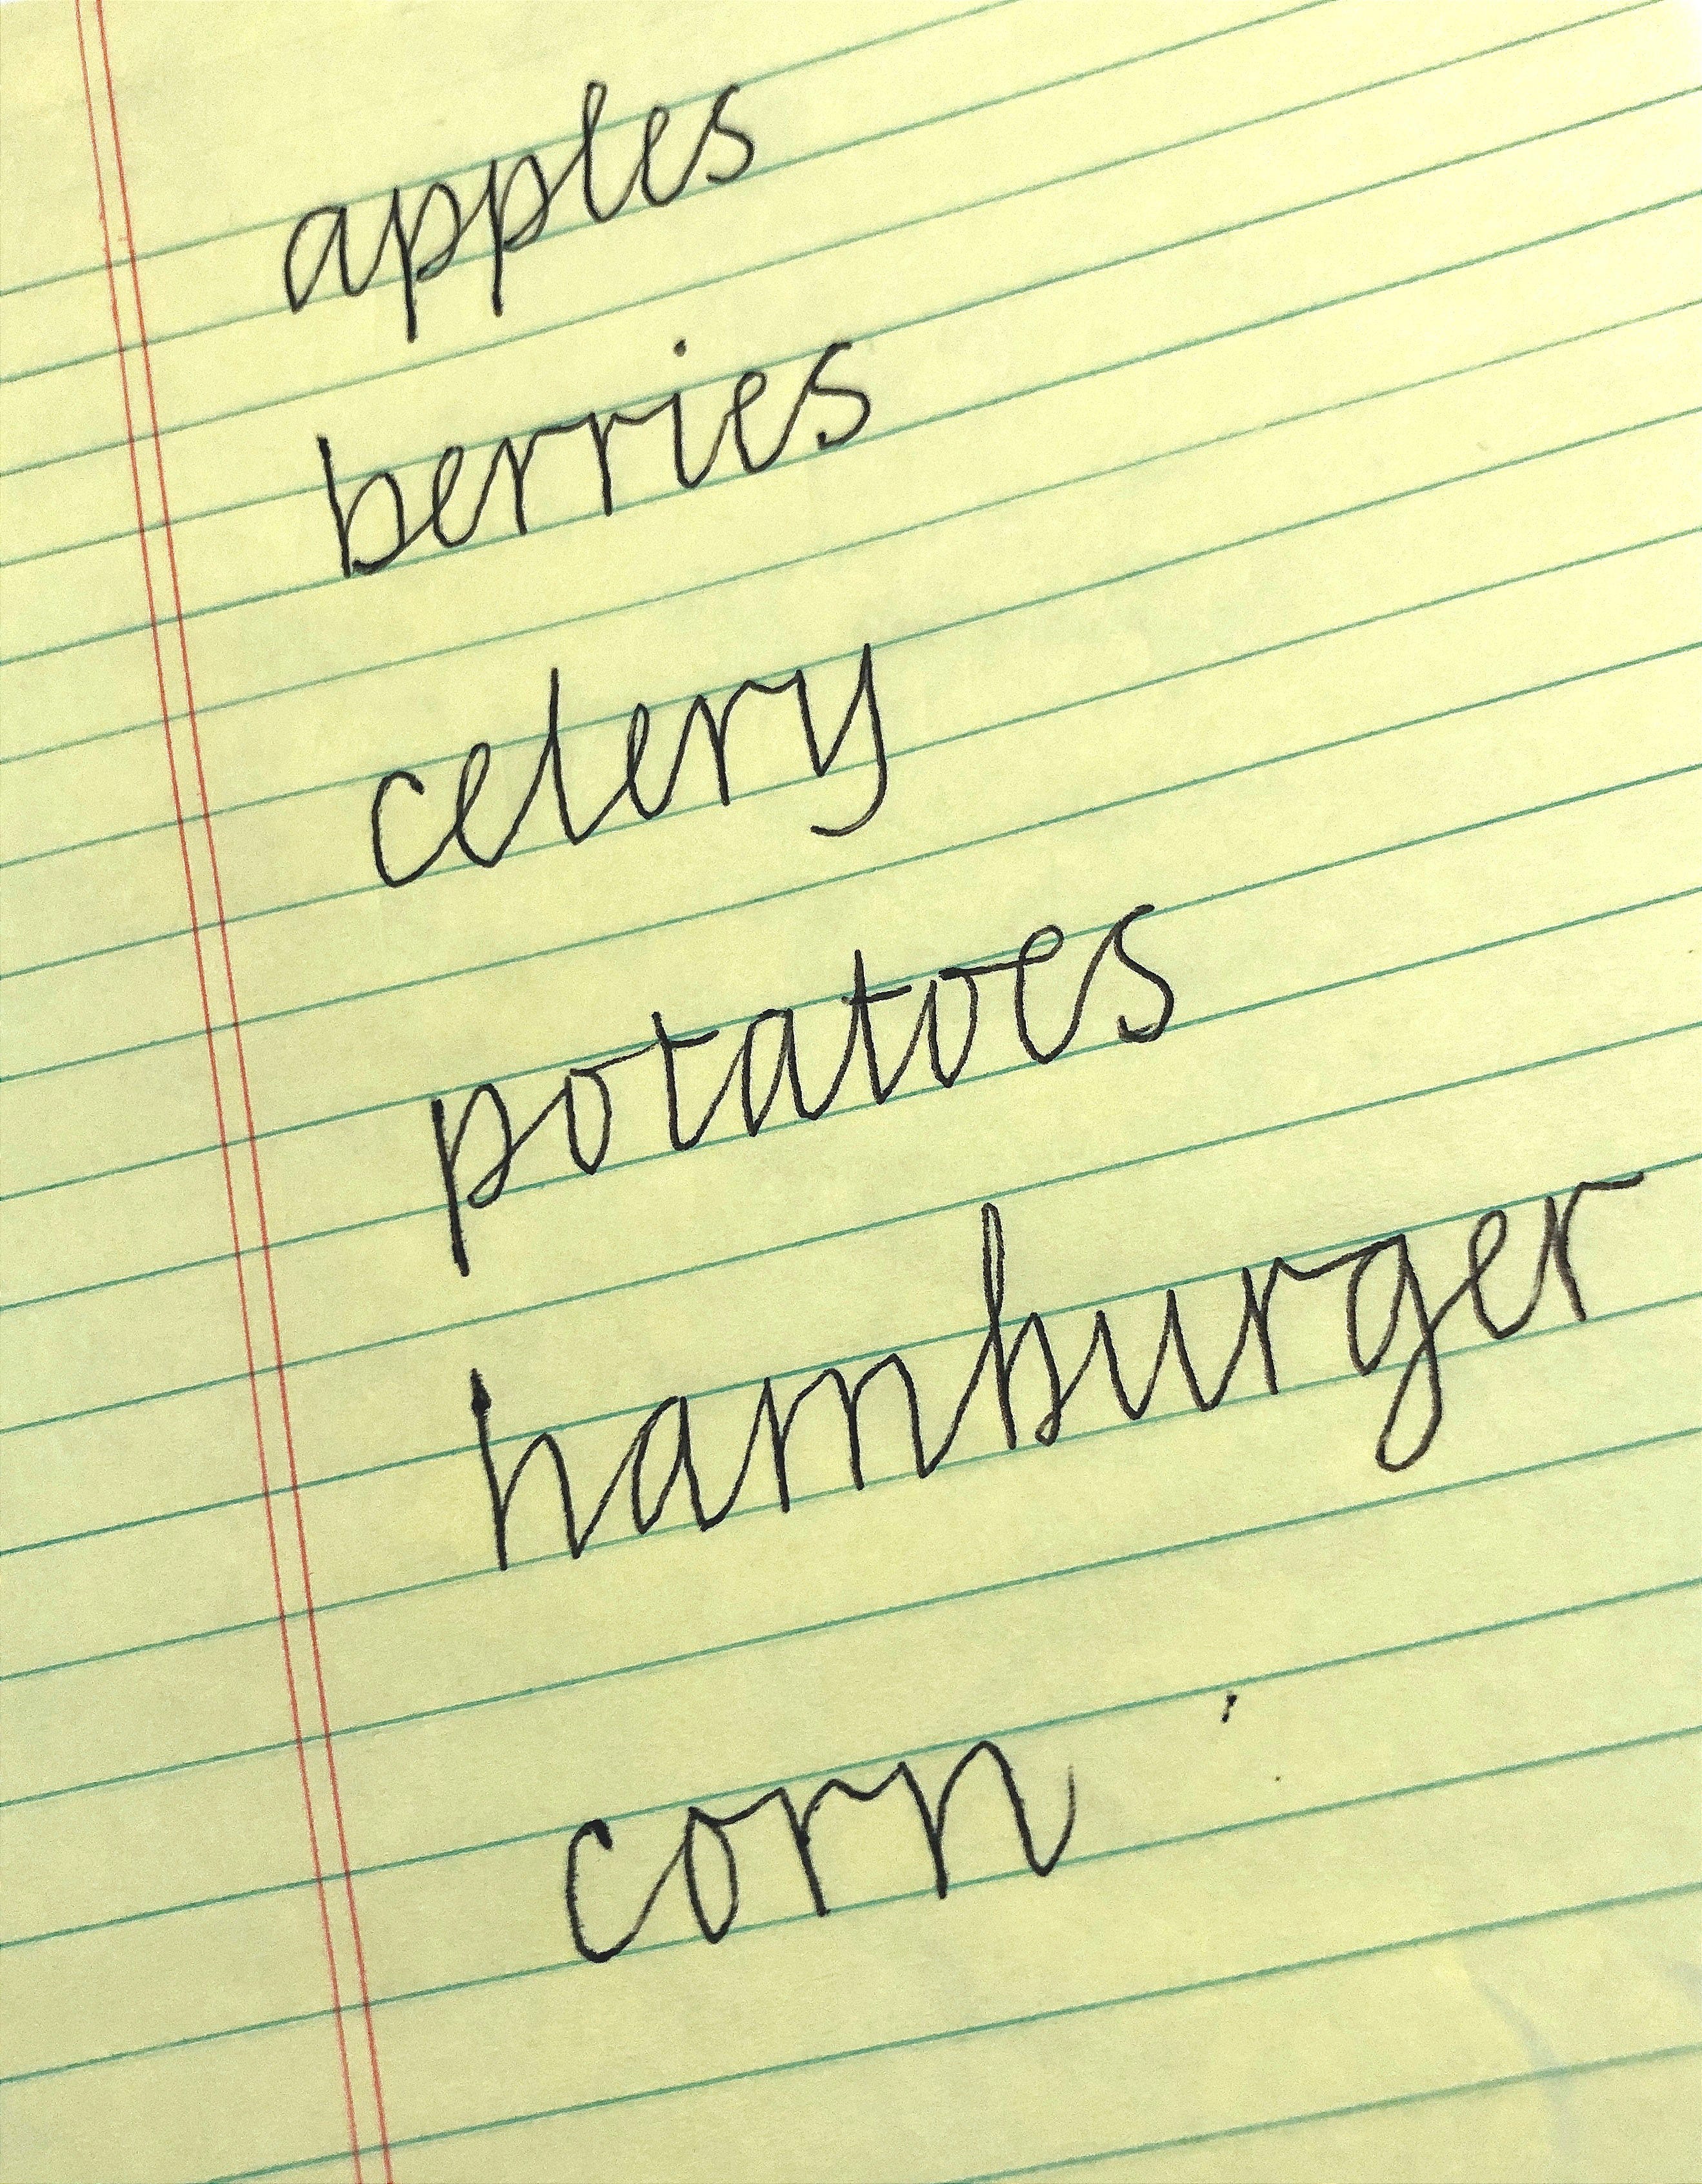 apples
berries
celery
potatoes
hamburger
corn